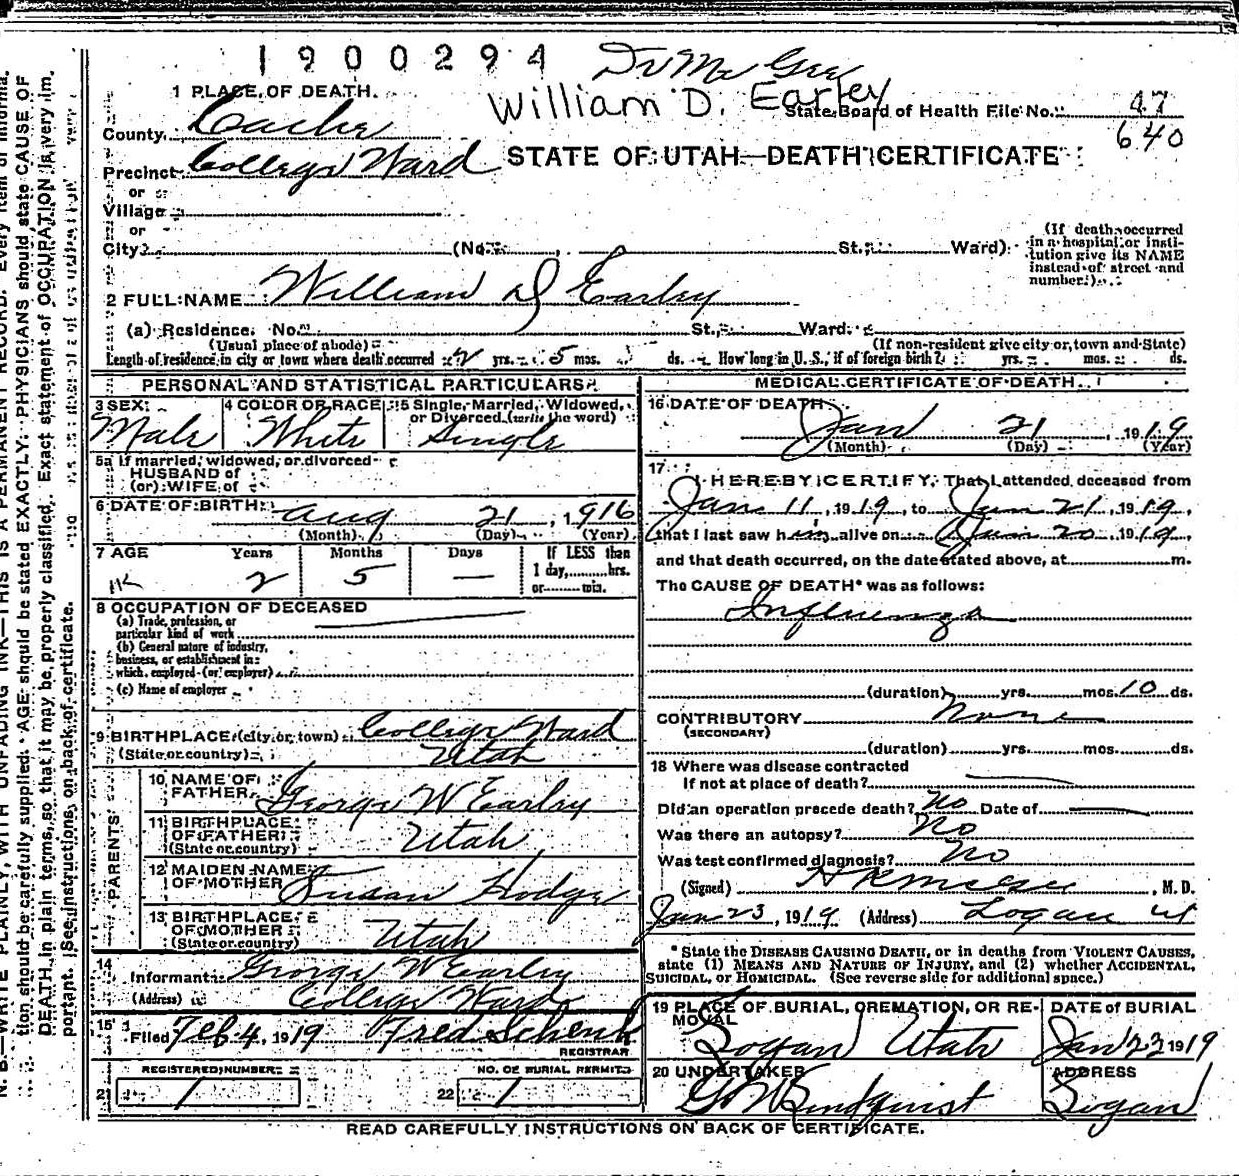 1900294
Dr McGee
William D. Earley
1 PLACE OF DEATH.
State Board of Health File No. 47
640
County Cache
Precinct College Ward
STATE OF UTAH—DEATH CERTIFICATE
or
Village
or
City (No. , St., Ward)
(If death occurred in a hospital or institution give its NAME instead of street and number.)
2 FULL NAME William D Earley
(a) Residence. No. St., Ward.
(Usual place of abode) (If non-resident give city or town and State)
Length of residence in city or town where death occurred 2 yrs. 5 mos. ds. How long in U. S., if of foreign birth? yrs. mos. ds.
PERSONAL AND STATISTICAL PARTICULARS
3 SEX: Male
4 COLOR OR RACE White
5 Single, Married, Widowed, or Divorced (write the word) Single
5a If married, widowed, or divorced
HUSBAND of
(or) WIFE of
6 DATE OF BIRTH: Aug 21, 1916
(Month) (Day) (Year)
7 AGE Years Months Days If LESS than
2 5 — 1 day, hrs.
or min.
8 OCCUPATION OF DECEASED
(a) Trade, profession, or
particular kind of work
(b) General nature of industry,
business, or establishment in
which employed (or employer)
(c) Name of employer
9 BIRTHPLACE (city or town) College Ward
(State or country) Utah
PARENTS
10 NAME OF FATHER George W Earley
11 BIRTHPLACE OF FATHER (State or country) Utah
12 MAIDEN NAME OF MOTHER Susan Hodge
13 BIRTHPLACE OF MOTHER (State or country) Utah
14 Informant George W Earley
(Address) College Ward
15 Filed Feb 4, 1919 Fred Schenk
REGISTRAR
REGISTERED NUMBER NO. OF BURIAL PERMIT
21 1 22 1
MEDICAL CERTIFICATE OF DEATH
16 DATE OF DEATH
Jan 21, 1919
(Month) (Day) (Year)
17 I HEREBY CERTIFY, That I attended deceased from
Jan 11, 1919, to Jan 21, 1919,
that I last saw him alive on Jan 20, 1919,
and that death occurred, on the date stated above, at m.
The CAUSE OF DEATH* was as follows:
Influenza
(duration) yrs. mos. 10 ds.
CONTRIBUTORY None
(SECONDARY)
(duration) yrs. mos. ds.
18 Where was disease contracted
If not at place of death?
Did an operation precede death? No Date of
Was there an autopsy? No
Was test confirmed diagnosis? No
(Signed) , M. D.
Jan 23, 1919 (Address) Logan Ut
*State the DISEASE CAUSING DEATH, or in deaths from VIOLENT CAUSES,
state (1) MEANS AND NATURE OF INJURY, and (2) whether ACCIDENTAL,
SUICIDAL, or HOMICIDAL. (See reverse side for additional space.)
19 PLACE OF BURIAL, CREMATION, OR REMOVAL Logan Utah
DATE of BURIAL Jan 23 1919
20 UNDERTAKER G W Lindquist
ADDRESS Logan
READ CAREFULLY INSTRUCTIONS ON BACK OF CERTIFICATE.
N. B.—WRITE PLAINLY, WITH UNFADING INK—THIS IS A PERMANENT RECORD. Every item of informa-
tion should be carefully supplied. AGE should be stated EXACTLY. PHYSICIANS should state CAUSE OF
DEATH in plain terms, so that it may be properly classified. Exact statement of OCCUPATION is very im-
portant. See instructions on back of certificate.